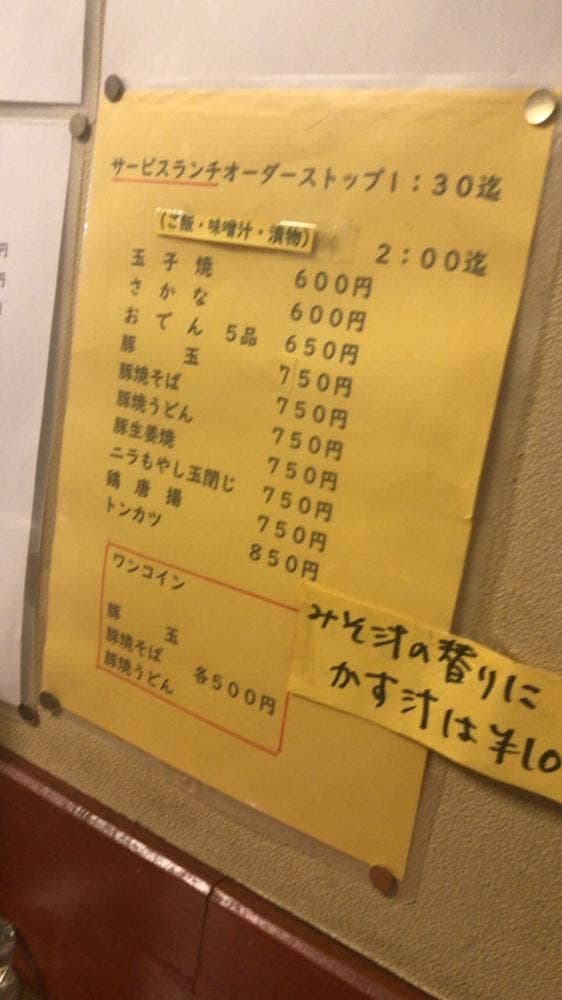 サービスランチオーダーストップ1:30迄
(ご飯・味噌汁・漬物)
2:00迄
玉子焼 600円
さかな 600円
おでん 5品 650円
豚玉 750円
豚焼そば 750円
豚焼うどん 750円
豚生姜焼 750円
ニラもやし玉閉じ 750円
鶏唐揚 750円
トンカツ 850円
ワンコイン
豚玉
豚焼そば 各500円
豚焼うどん
みそ汁の替りに
かす汁は¥10
円
円